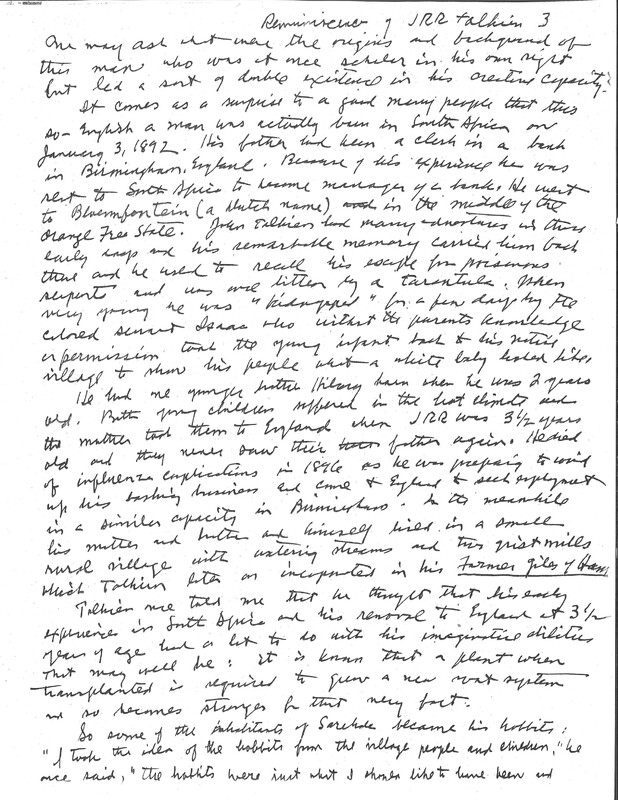 Reminiscence of JRR Tolkien 3
One may ask what were the origins and background of
this man who was at once scholar in his own right
but led a sort of double existence in his creative capacity.
It comes as a surprise to a good many people that this
so-English a man was actually born in South Africa on
January 3, 1892. His father had been a clerk in a bank
in Birmingham, England. Because of his experience he was
sent to South Africa to become manager of a bank. He went
to Bloemfontein (a Dutch name) in the middle of the
Orange Free State. John Tolkien had many adventures in those
early days and his remarkable memory carried him back
there and he used to recall his escape from poisonous
serpents and was once bitten by a tarantula. When
very young he was "kidnapped" for a few days by the
colored servant Isaac who without the parents knowledge
or permission took the young infant back to his native
village to show his people what a white baby looked like.
He had one younger brother Hilary born when he was 2 years
old. Both young children suffered in the hot climate and
the mother took them to England when JRR was 3 1/2 years
old and they never saw their father again. He died
of influenza complications in 1896 as he was preparing to wind
up his banking business and come to England to seek employment
in a similar capacity in Birmingham. In the meanwhile
his mother and brother and himself lived in a small
rural village with watering streams and two grist mills
which Tolkien later on incorporated in his Farmer Giles of Ham.
Tolkien once told me that he thought that his early
experiences in South Africa and his removal to England at 3 1/2
years of age had a lot to do with his imaginative abilities
That may well be: it is known that a plant when
transplanted is required to grow a new root system
and so becomes stronger for that very fact.
So some of the inhabitants of Sarehole became his hobbits:
"I took the idea of the hobbits from the village people and children," he
once said, "the hobbits were just what I should like to have been and